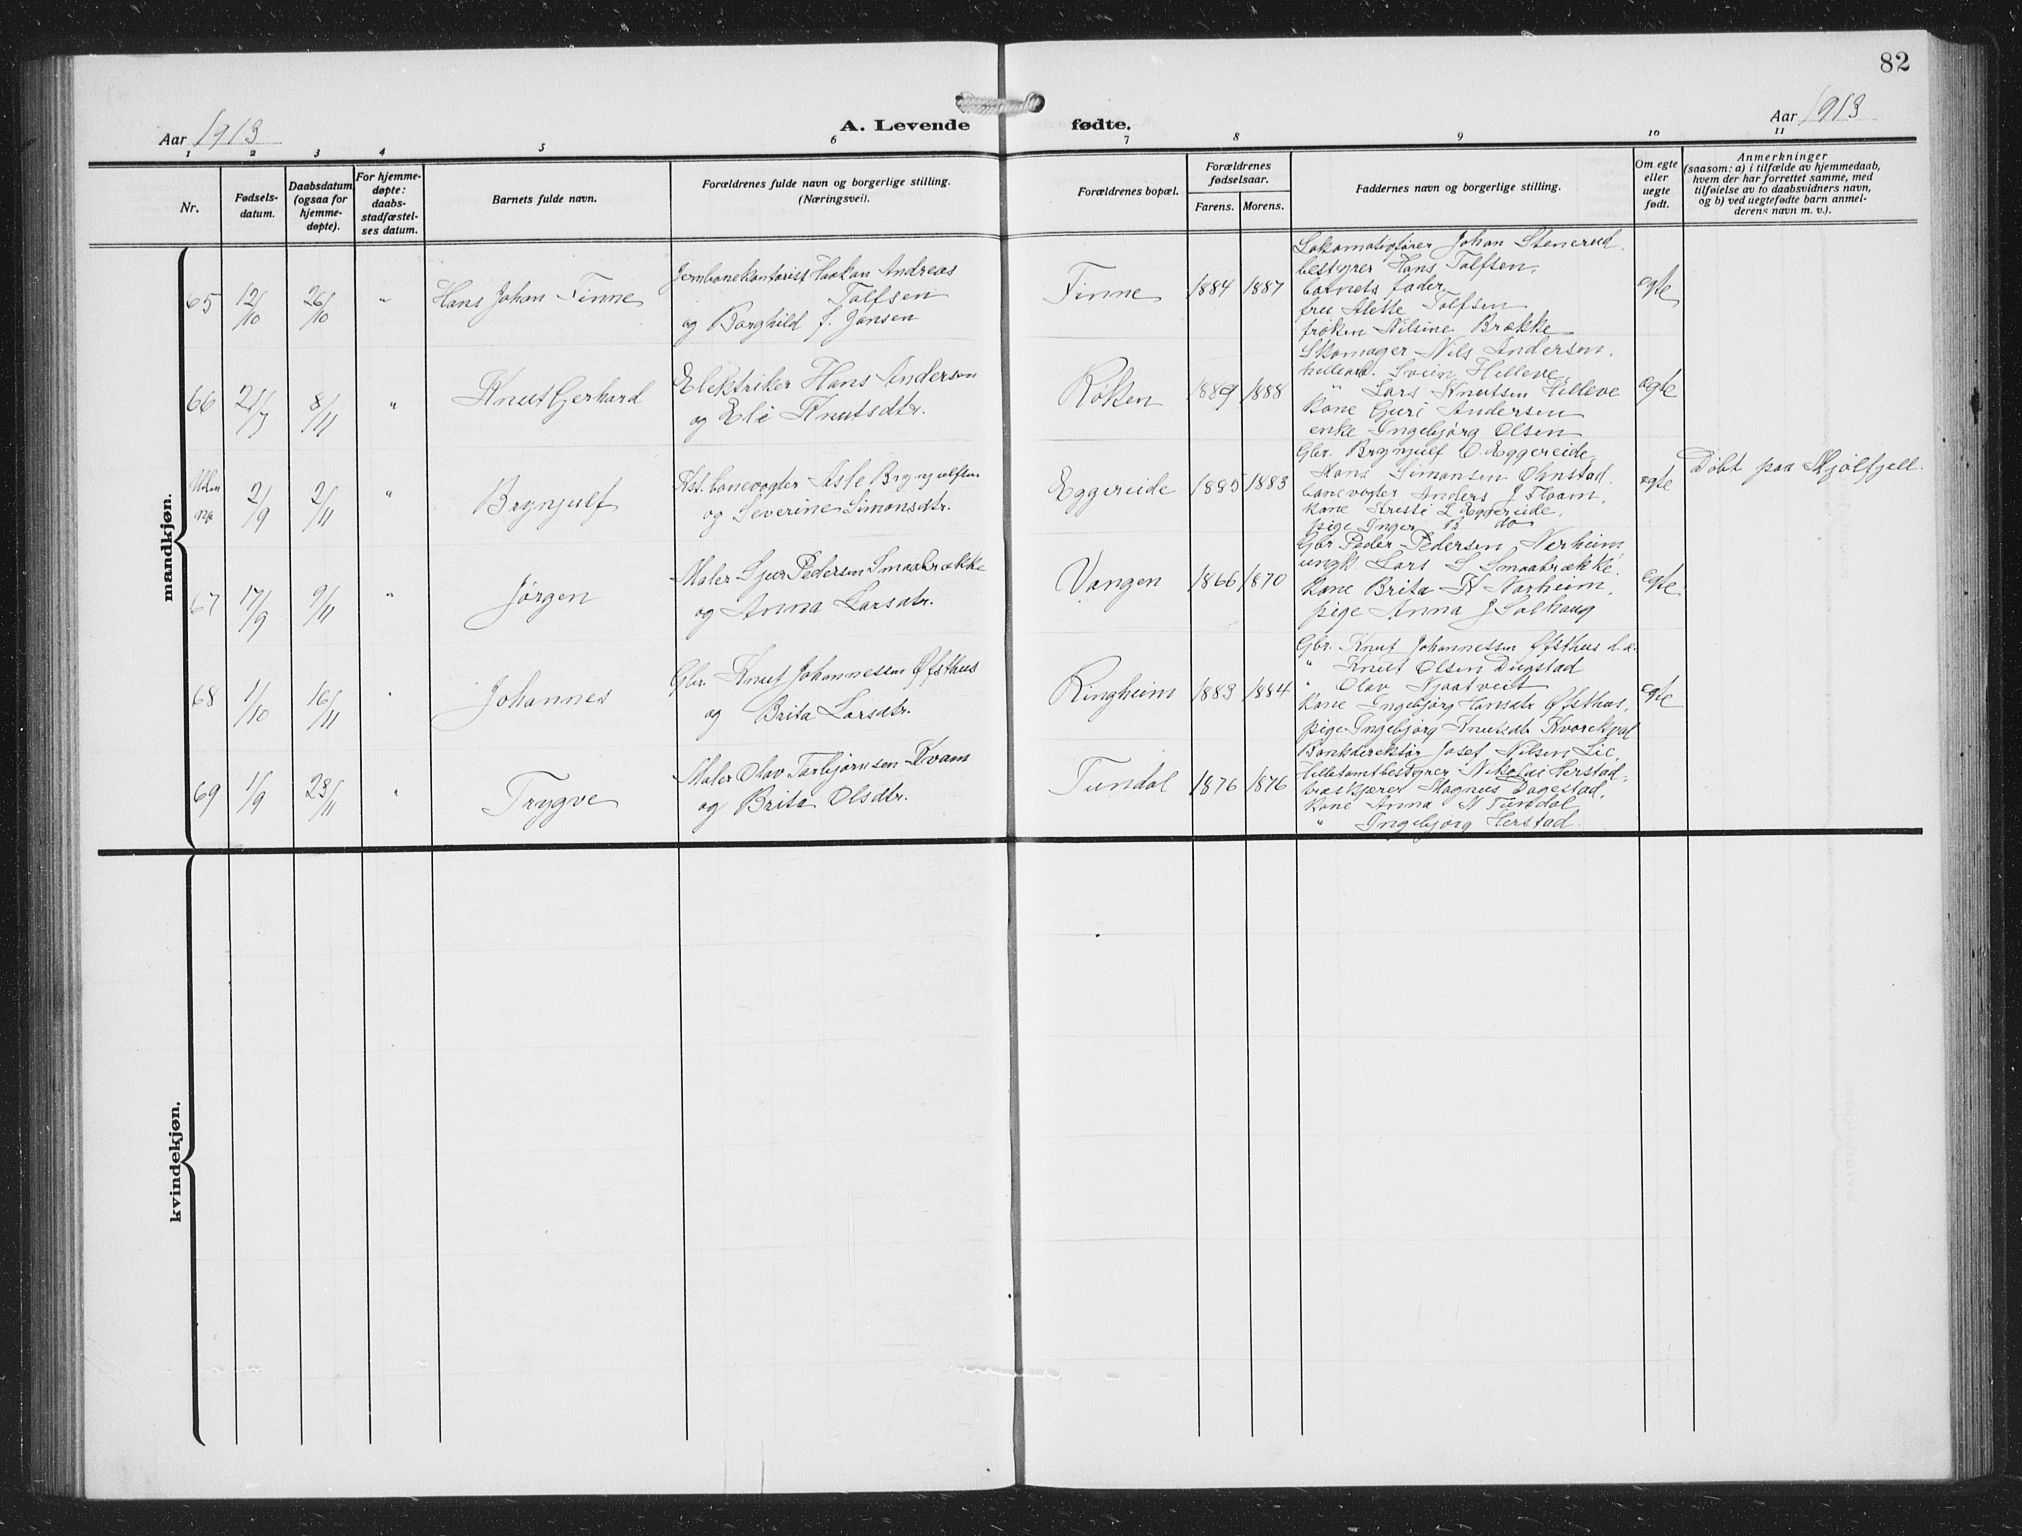 82
Aar 1913
A. Levende fødte.
Aar 1913
1 2 3 4 5 6 7 8 9 10 11
Nr.
Fødsels-
datum.
Daabsdatum
(ogsaa for
hjemme-
døpte).
For hjemme-
døpte:
daabs-
stadfæstel-
ses datum.
Barnets fulde navn.
Forældrenes fulde navn og borgerlige stilling.
(Næringsvei).
Forældrenes bopæl.
Forældrenes
fødselsaar.
Farens. Morens.
Faddernes navn og borgerlige stilling.
Om egte
eller
uegte
født.
Anmerkninger
(saasom: a) i tilfælde av hjemmedaab,
hvem der har forrettet samme, med
tilføielse av to daabsvidners navn,
og b) ved uegtefødte barn anmel-
derens navn m. v.).
mandkjøn.
65 12/10 26/10 " Hans Johan Finne
Jernbanekontorist Haakon Andreas
Tolfsen
og Borghild f. Jansen
Finne 1884 1887
Lokomotivfører Johan Stenerud.
bestyrer Hans Tolfsen,
barnets fader.
fru Alette Tolfsen
frøken Nilsine Brække
egte
66 21/7 8/11 " Knut Gerhard
Elektriker Hans Andersen
og Eli Knutsdtr.
Rokten 1889 1888
Skomager Nils Andersen,
Svein Hilleve
" Lars Knutsen Hilleve
kone Guri Andersen
enke Ingebjørg Olsen
egte
Uden
No 2/9 2/11 " Brynjulf
Kst. banevogter Asle Brynjulfsen
og Severine Simonsdtr.
Eggereide 1885 1883
Gbr. Brynjulf O. Eggereide,
Hans Simonsen Ohnstad.
banevogter Anders J Flaam,
kone Kristi L Eggereide,
pige Inger B do
egte
Døbt paa Mjølfjell.
67 17/9 9/11 " Jørgen
Maler Sjur Pedersen Smaabrække
og Anna Larsdtr.
Vangen 1866 1870
Gbr Peder Pedersen Nerheim,
ungk Lars S Smaabrække,
kone Brita K Nerheim,
pige Anna J Solhaug
egte
68 1/10 16/11 " Johannes
Gbr. Knut Johannessen Øfsthus
og Brita Larsdtr.
Ringheim 1883 1884
Gbr. Knut Johannessen Øfsthus d.æ.
" Knut Olsen Dugstad
" Olav Njaatveit
Kone Ingebjørg Hansdtr Øfsthus,
pige Ingebjørg Knutsdtr Kvarekval
egte
69 1/9 23/11 " Trygve
Maler Olav Torbjørnsen Kvam
og Brita Olsdtr.
Tundal 1876 1876
Bankdirektør Josef Nilsen Lie,
Nikolai Herstad,
træskjærer Magnus Dagestad,
kone Anna N Tundal
" Ingebjørg Herstad.
kvindekjøn.